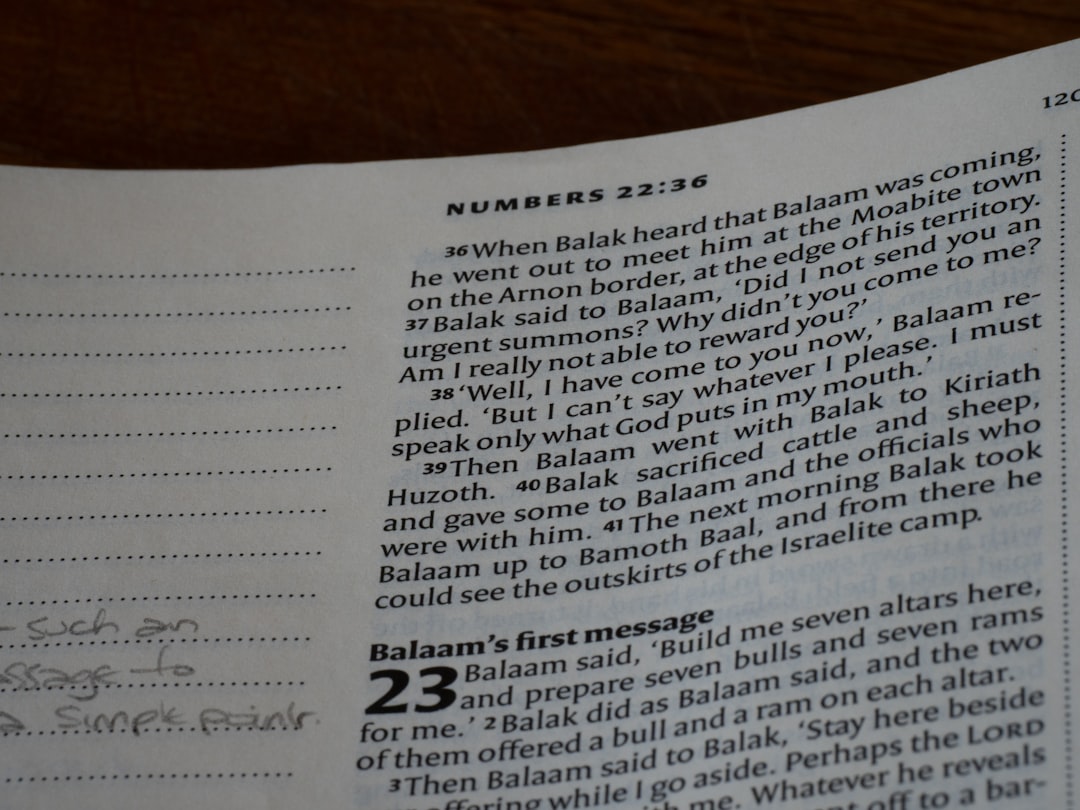 120
NUMBERS 22:36
36 When Balak heard that Balaam was coming,
he went out to meet him at the Moabite town
on the Arnon border, at the edge of his territory.
37 Balak said to Balaam, ‘Did I not send you an
urgent summons? Why didn’t you come to me?
Am I really not able to reward you?’
38 ‘Well, I have come to you now,’ Balaam re-
plied. ‘But I can’t say whatever I please. I must
speak only what God puts in my mouth.’
39 Then Balaam went with Balak to Kiriath
Huzoth. 40 Balak sacrificed cattle and sheep,
and gave some to Balaam and the officials who
were with him. 41 The next morning Balak took
Balaam up to Bamoth Baal, and from there he
could see the outskirts of the Israelite camp.
Balaam’s first message
23 Balaam said, ‘Build me seven altars here,
and prepare seven bulls and seven rams
for me.’ 2 Balak did as Balaam said, and the two
of them offered a bull and a ram on each altar.
3 Then Balaam said to Balak, ‘Stay here beside
offering while I go aside. Perhaps the LORD
with me. Whatever he reveals
off to a bar-
such an
ssage to
a simple point.